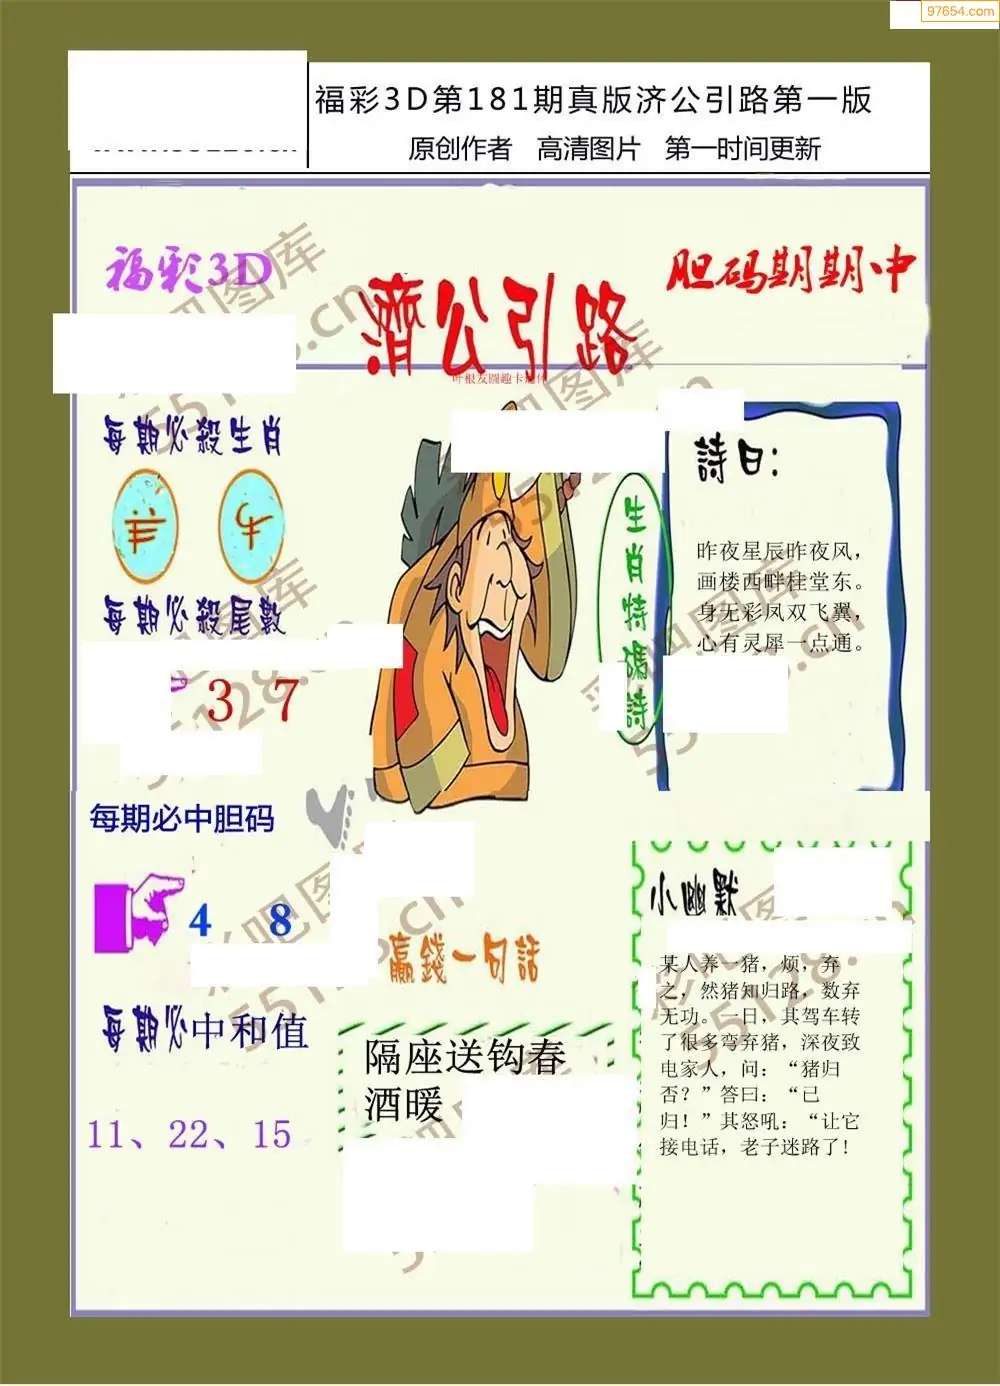 97654.com
福彩3D第181期真版济公引路第一版
原创作者 高清图片 第一时间更新
福彩3D
濟公引路
胆码期期中
每期必殺生肖
羊 牛
每期必殺尾數
3 7
生肖特碼詩
詩曰:
昨夜星辰昨夜风，
画楼西畔桂堂东。
身无彩凤双飞翼，
心有灵犀一点通。
每期必中胆码
4 8
每期必中和值
11、22、15
贏錢一句話
隔座送钩春
酒暖
小幽默
某人养一猪，烦，弃
之，然猪知归路，数弃
无功。一日，其驾车转
了很多弯弃猪，深夜致
电家人，问：“猪归
否？”答曰：“已
归！”其怒吼：“让它
接电话，老子迷路了!
彩吧图库
55128.cn